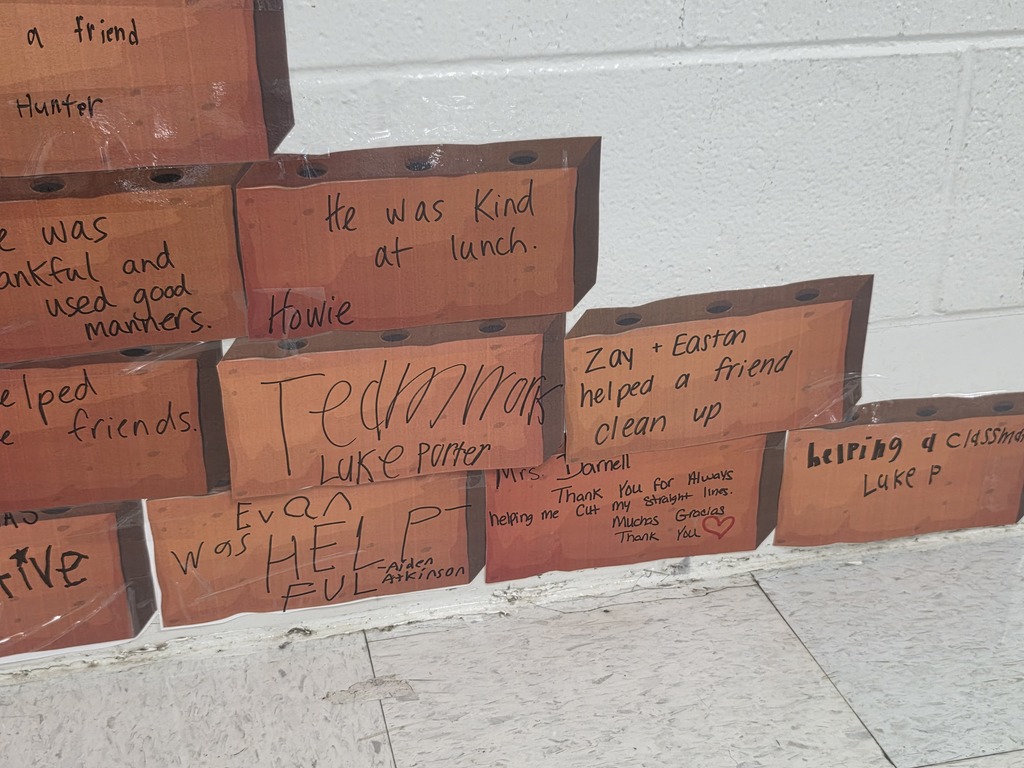 a friend
Hunter
was
and
used good
manners.
He was Kind
at lunch.
Howie
friends.
Teamwork
Luke Porter
Zay + Easton
helped a friend
clean up
Evan
was HELP-
FUL -Aiden
Atkinson
Mrs. Darnell
Thank You for Always
helping me cut my straight lines.
Muchas Gracias
Thank You
helping a
Luke P